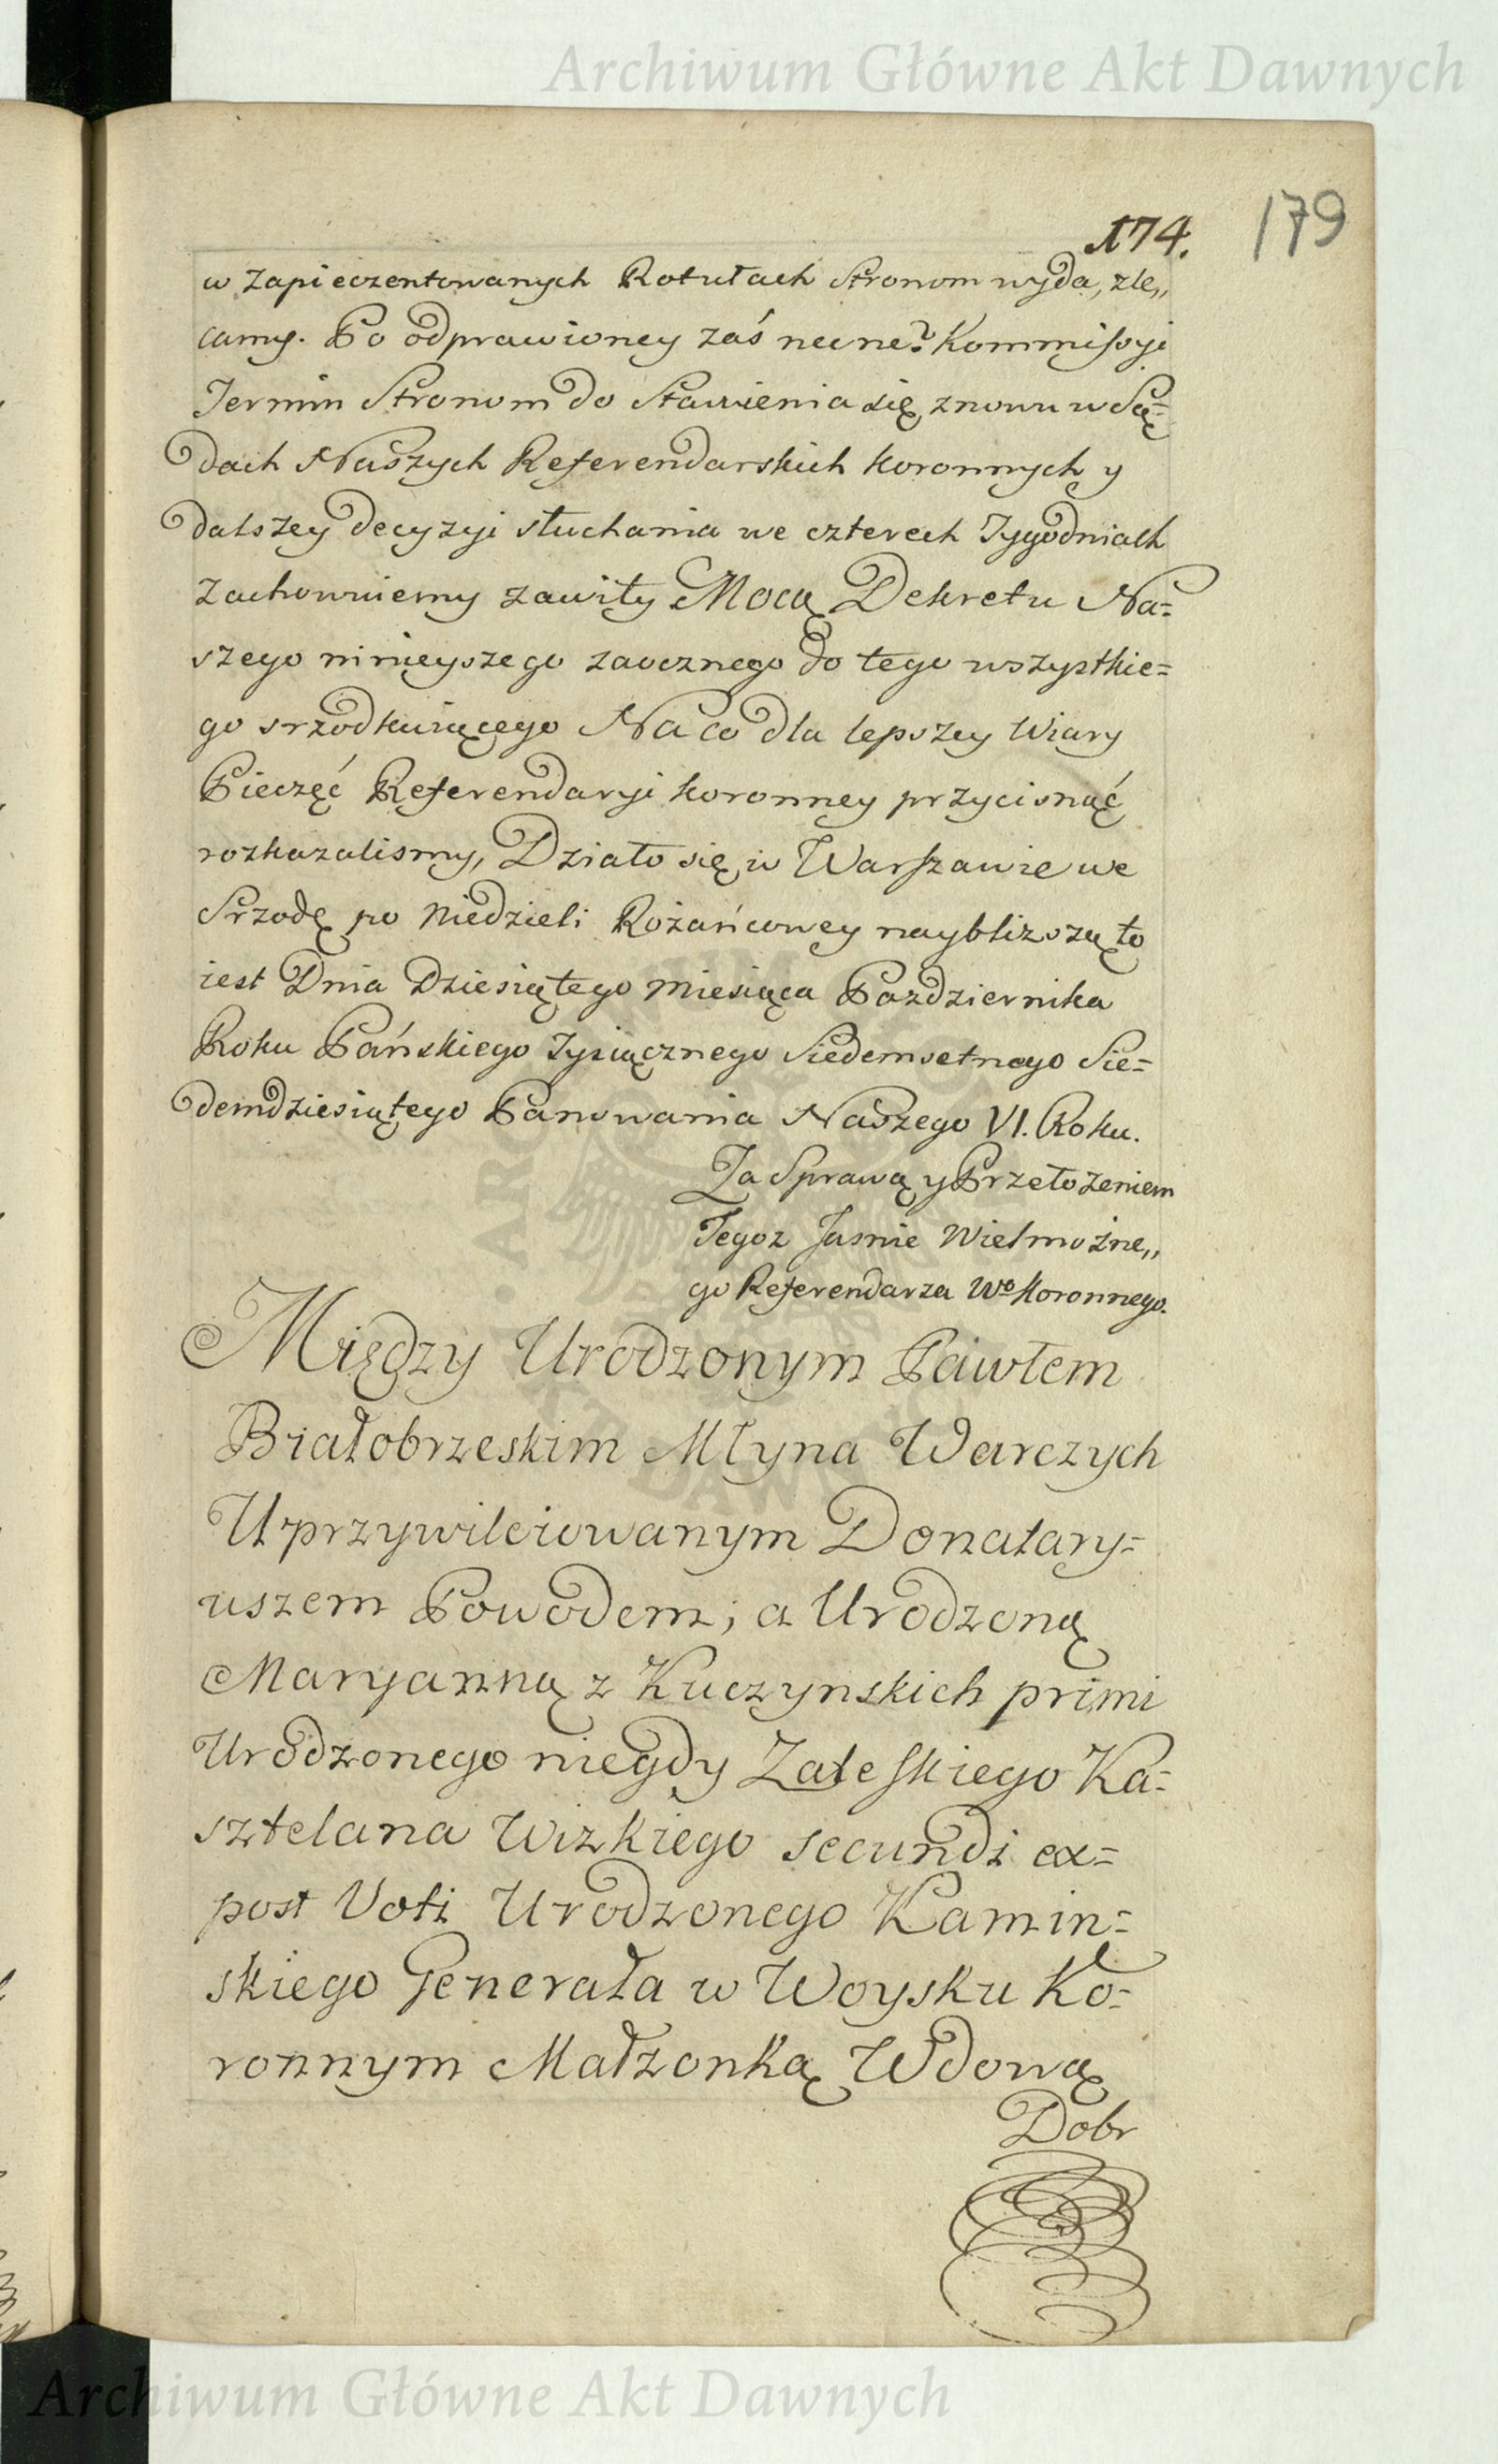 Archiwum Główne Akt Dawnych
179
174.
w Zapieczentowanych Rotułach Stronom wyda, zle„
camy. Po odprawioney zaś Kommissyi
Termin Stronom do Stawienia się znowu w Są=
dach Naszych Referendarskich Koronnych y
dalszey decyzyi słuchania we czterech Tygodniach
Zachowuiemy zawity Mocą Dekretu Na=
szego ninieyszego zaocznego do tego wszystkie=
go srzodkuiącego Na co dla lepszey Wiary
Pieczęć Referendaryi Koronney przycisnąć
rozkazalismy, Działo się w Warszawie we
Srzodę po Niedzieli Rożańcowey naybliższą to
iest Dnia Dziesiątego Miesiąca Pazdziernika
Roku Pańskiego Tysiącznego Siedemsetnego Sie=
demdziesiątego Panowania Naszego VI. Roku.
Za Sprawą y Przełożeniem
Tegoz Jasnie Wielmożne„
go Referendarza Wo Koronnego.
Między Urodzonym Pawłem
Białobrzeskim Młyna Warczych
Uprzywileiowanym Donatary=
uszem Powodem; a Urodzoną
Maryanną z Kuczynskich primi
Urodzonego niegdy Zaleskiego Ka=
sztelana Wizkiego secundi ex=
post Voti Urodzonego Kamin=
skiego Generała w Woysku Ko=
ronnym Małzonką Wdową
Dobr
Archiwum Główne Akt Dawnych